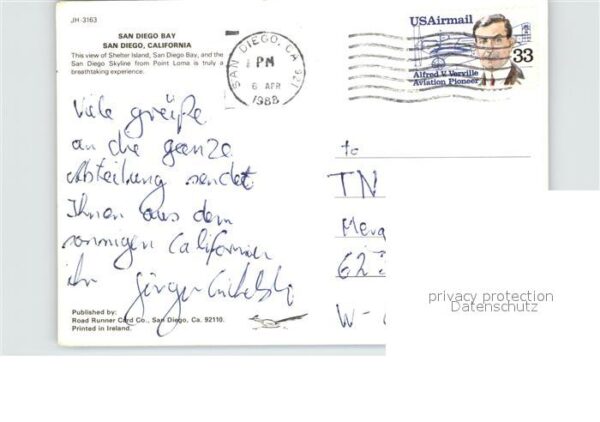 JH-3163
SAN DIEGO BAY
SAN DIEGO, CALIFORNIA
This view of Shelter Island, San Diego Bay, and the
San Diego Skyline from Point Loma is truly a
breathtaking experience.
SAN DIEGO, CA 921
PM
6 APR
1988
USAirmail
33
Alfred V. Verville
Aviation Pioneer
Viele grüße
an die ganze
Abteilung sendet
Ihnen aus dem
sonnigen Californien
ihr Jürgen
to
TN
62
W-
Published by:
Road Runner Card Co., San Diego, Ca. 92110.
Printed in Ireland.
privacy protection
Datenschutz